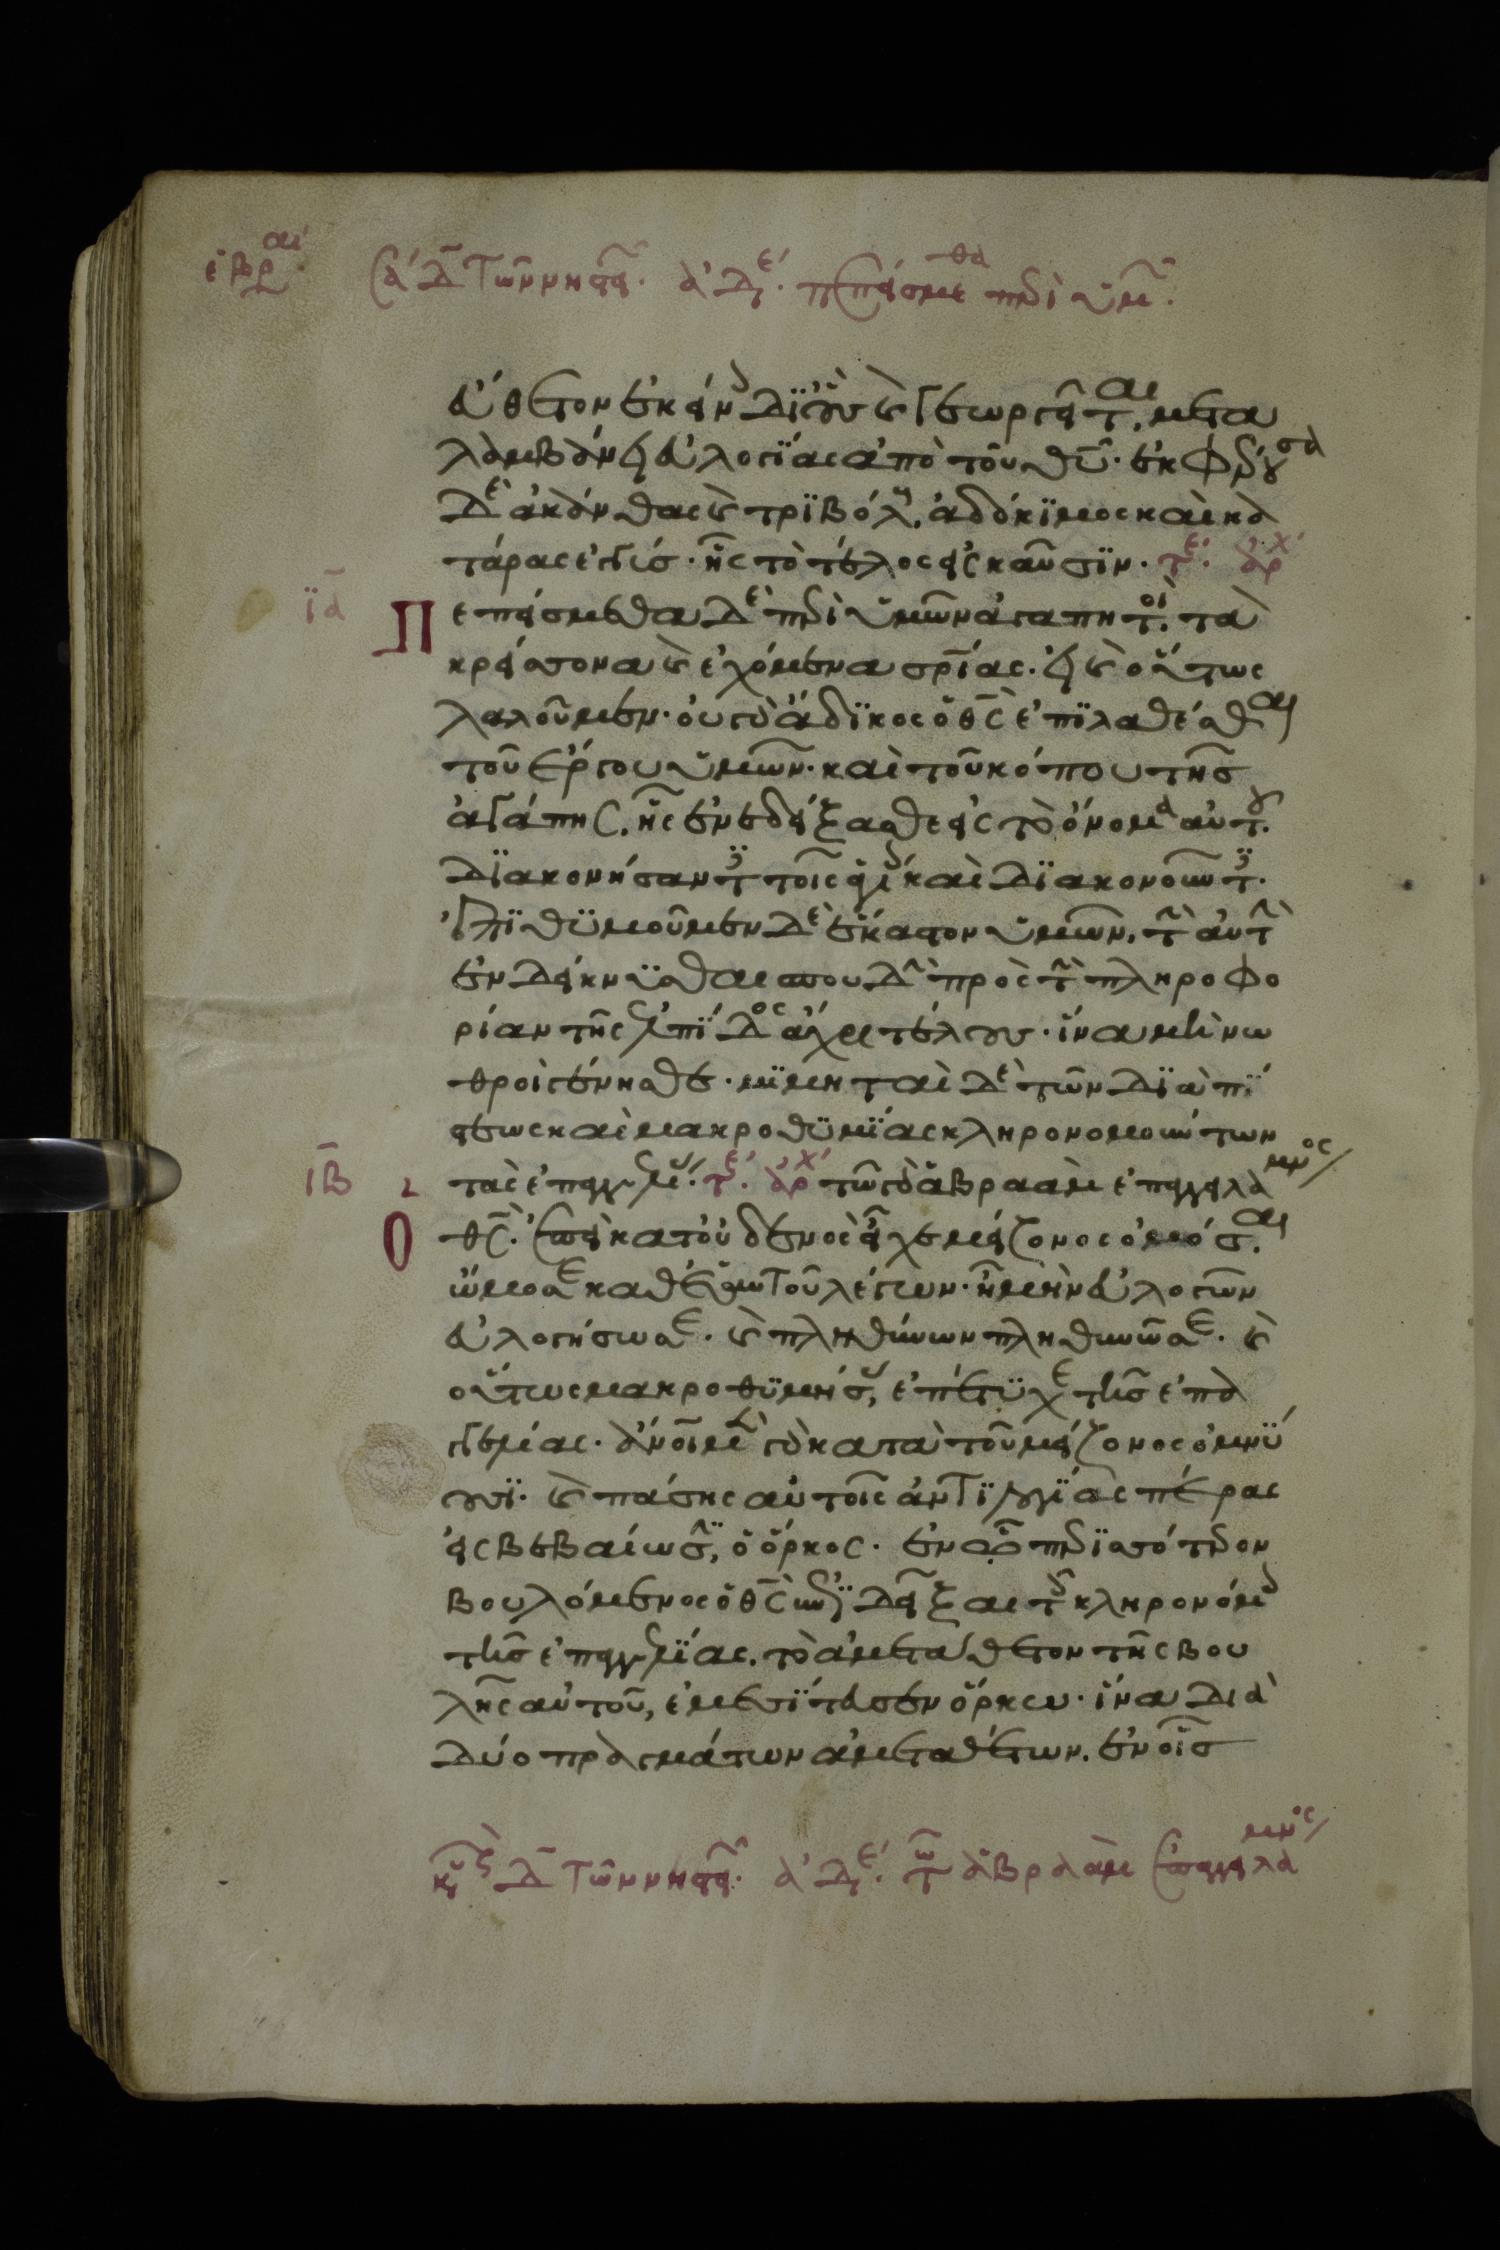 ἑβραί Σα δ τῶν νηστ. ἀδε. πεπείσμεθα περὶ ὑμ.
εὔθετον ἐκείνοις δι οὓς καὶ γεωργεῖται, μετα
λαμβάνει εὐλογίας ἀπὸ τοῦ θυ. ἐκφέρουσα
δὲ ἀκάνθας καὶ τριβόλους, ἀδόκιμος καὶ κα
τάρας ἐγγύς. ἧς τὸ τέλος εἰς καῦσιν. τε. ἀρχ
ια Πεπείσμεθα δὲ περὶ ὑμῶν ἀγαπητοί. τὰ
κρείττονα καὶ ἐχόμενα σρίας. εἰ καὶ οὕτως
λαλοῦμεν. οὐ γὰρ ἄδικος ὁ θς ἐπιλαθέσθαι
τοῦ ἔργου ὑμῶν. καὶ τοῦ κόπου τῆς
ἀγάπης, ἧς ἐνεδείξασθε εἰς τὸ ὄνομα αὐτοῦ.
διακονήσαντες τοῖς ἁγίοις καὶ διακονοῦντες.
ἐπιθυμοῦμεν δὲ ἕκαστον ὑμῶν, τὴν αὐτὴν
ἐνδείκνυσθαι σπουδὴν πρὸς τὴν πληροφο
ρίαν τῆς ἐλπίδος ἄχρι τέλους. ἵνα μὴ νω
θροὶ γένησθε. μιμηταὶ δὲ τῶν διὰ πί
στεως καὶ μακροθυμίας κληρονομούντων
ιβ τὰς ἐπαγγελίας. τε. ἀρχ τῶ γὰρ ἀβραὰμ ἐπαγγειλάμενος
Ο θς. ἐπεὶ κατ οὐδενὸς εἶχε μείζονος ὀμόσαι.
ὤμοσε καθ ἑαυτοῦ λέγων. ἦ μὴν εὐλογῶν
εὐλογήσω σε. καὶ πληθύνων πληθυνῶ σε. καὶ
οὕτως μακροθυμήσας, ἐπέτυχε τῆς ἐπα
γγελίας. ἄνοι μὲν γὰρ κατὰ τοῦ μείζονος ὀμνύ
ουσι. καὶ πάσης αὐτοῖς ἀντιλογίας πέρας
εἰς βεβαίωσιν, ὁ ὅρκος. ἐν ᾧ περισσότερον
βουλόμενος ὁ θς ἐπιδεῖξαι τοῖς κληρονόμοις
τῆς ἐπαγγελίας, τὸ ἀμετάθετον τῆς βου
λῆς αὐτοῦ, ἐμεσίτευσεν ὅρκω. ἵνα διὰ
δύο πραγμάτων ἀμεταθέτων, ἐν οἷς
κυ ϛ δ τῶν νηστ. ἀδε. τῶ ἀβραὰμ ἐπαγγειλάμενος